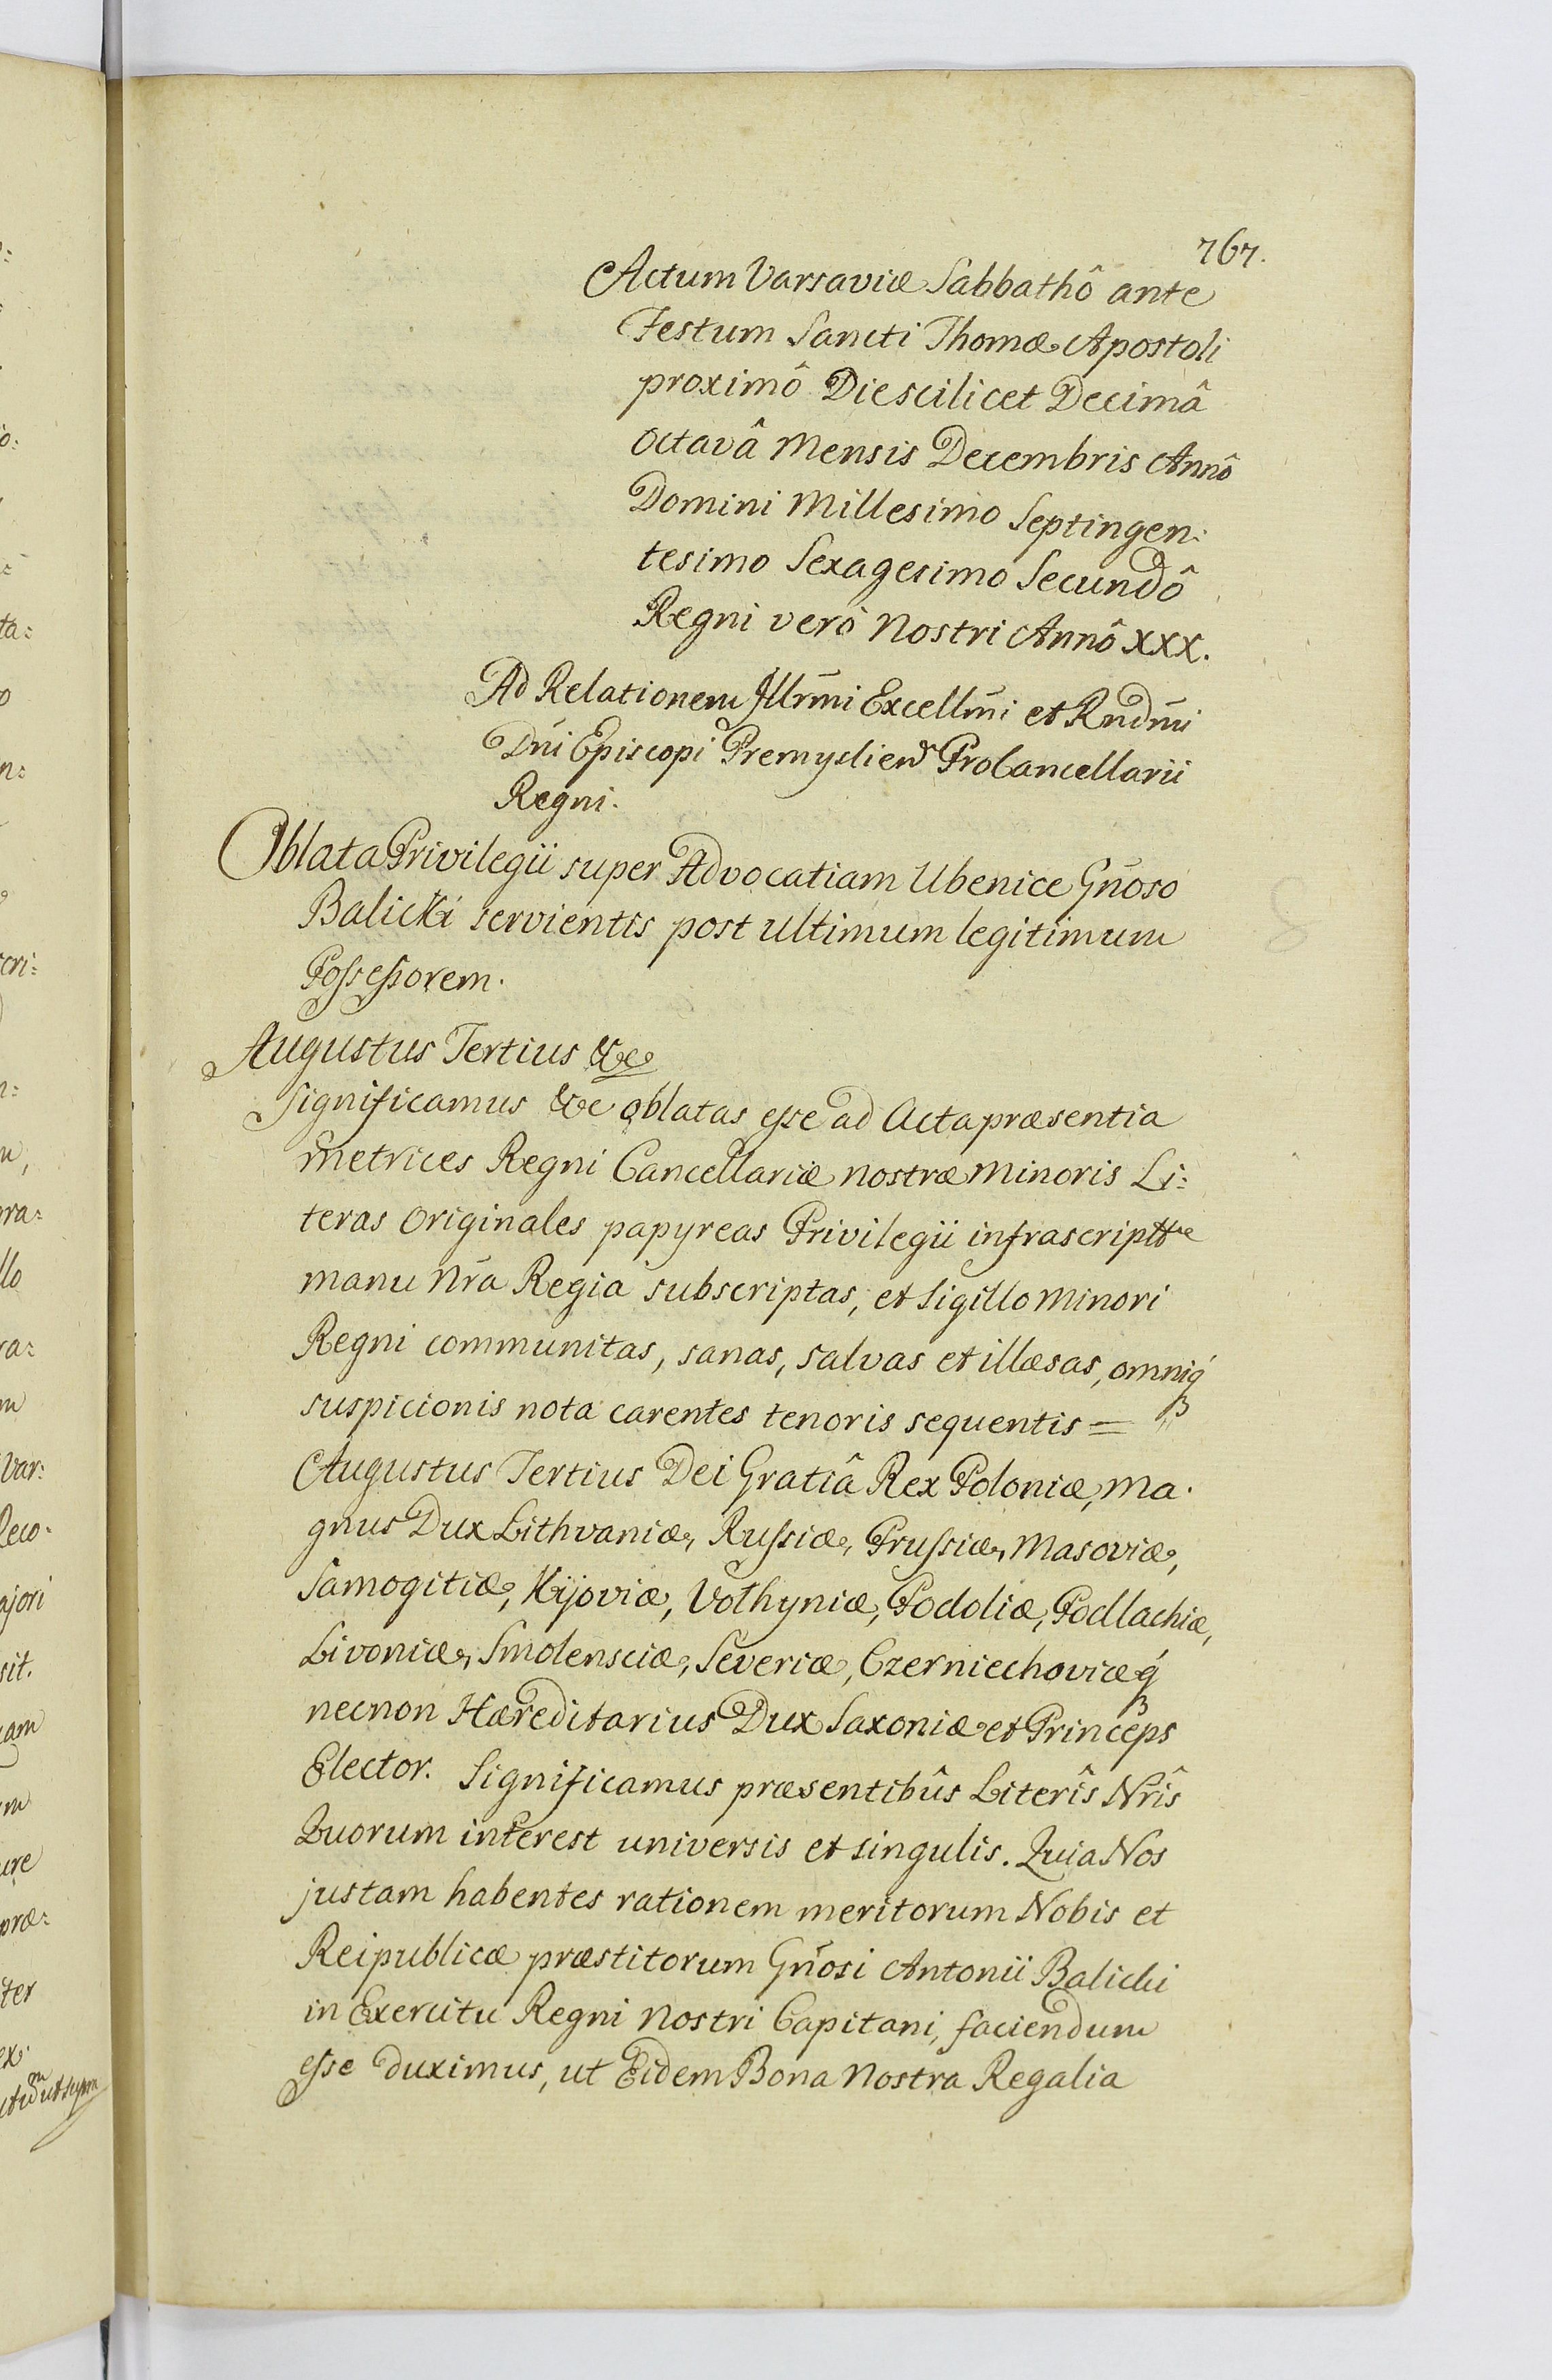 767.
Actum Varsaviæ Sabbathô ante
Festum Sancti Thomæ Apostoli
proximô Die scilicet Decimâ
octavâ Mensis Decembris Annô
Domini Millesimo Septingen:
tesimo Sexagesimo Secundô
Regni verò Nostri Annô XXX.
Ad Relationem Illrm̃i Excellm̃i et Rndm̃i
Dñi Episcopi Premyslien̄ ProCancellarii
Regni.
Oblata Privilegii super Advocatiam Ubenice Gñoso
Balicki servientis post ultimum legitimum
Possessorem.
Augustus Tertius &c
Significamus &c oblatas esse ad Acta præsentia
Metrices Regni Cancellariæ nostræ Minoris Li:
teras Originales papyreas Privilegii infrascriptt
manu Nrã Regia subscriptas, et Sigillo Minori
Regni communitas, sanas, salvas et illæsas, omniq́
suspicionis nota carentes tenoris sequentis =
Augustus Tertius Dei Gratiâ Rex Poloniæ, Ma.
gnus Dux Lithvaniæ, Russiæ, Prussiæ, Masoviæ,
Samogitiæ, Kijoviæ, Volhyniæ, Podoliæ, Podlachiæ,
Livoniæ, Smolensciæ, Severiæ, Czerniechoviæq́
necnon Hæreditarius Dux Saxoniæ et Princeps
Elector. Significamus præsentibûs Literîs Nrîs
Quorum interest universis et singulis. Quia Nos
justam habentes rationem meritorum Nobis et
Reipublicæ præstitorum Gñosi Antonii Balicki
in Exercitu Regni Nostri Capitani, faciendum
esse duximus, ut Eidem Bona Nostra Regalia